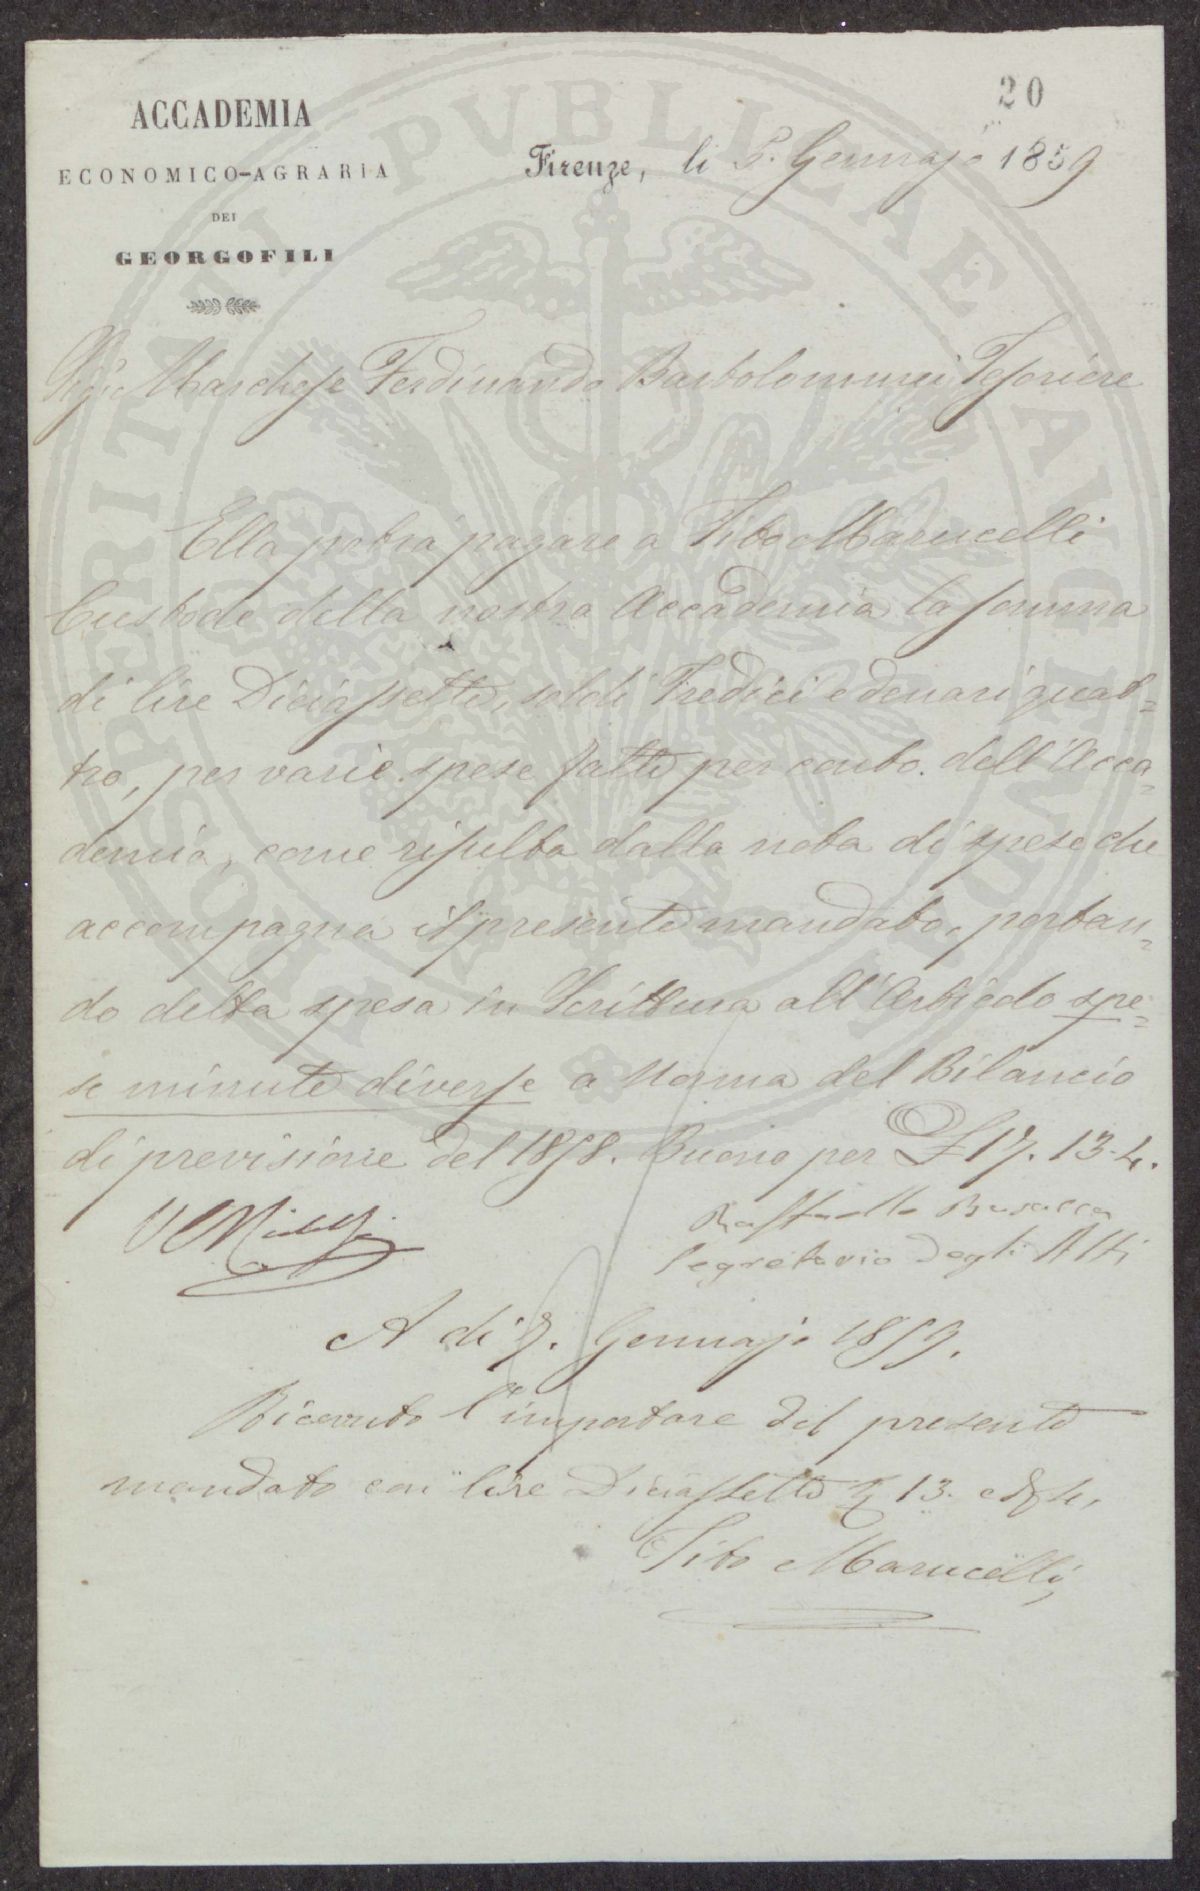 20
ACCADEMIA
ECONOMICO-AGRARIA
DEI
GEORGOFILI
Firenze, li 5. Gennajo 1859
Sig. Marchese Ferdinando Bartolommei Tesoriere
Ella potrà pagare a Tito Marucelli
Custode della nostra Accademia la somma
di lire Diciassette, soldi Tredici e denari quat=
tro, per varie spese fatte per conto dell'Acca=
demia, come risulta dalla nota di spese che
accompagna il presente mandato, portan=
do detta spesa in Scrittura all'Articolo spe=
se minute diverse a Norma del Bilancio
di previsione del 1858. Buono per £ 17. 13. 4.
Raffaello Busacca
Segretario degli Atti
A di Gennajo 1859.
Ricevuto l'importare del presente
mandato con lire Diciassette 13. e 4,
Tito Marucelli
PROSPERITATI PVBLICAE AVGENDAE